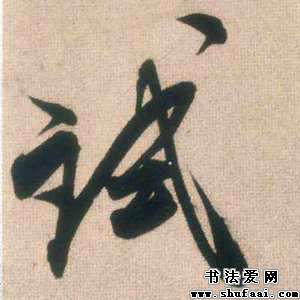 試
书法爱网
www.shufaai.com